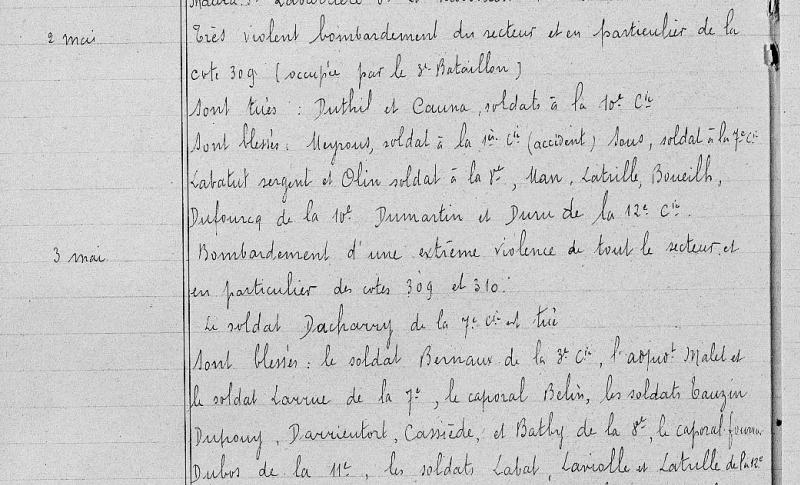 2 mai Très violent bombardement du secteur et en particulier de la
cote 309 (occupée par le 3e Bataillon)
Sont tués : Duthil et Cauna, soldats à la 10e Cie
Sont blessés : Meyrous, soldat à la 1ère Cie (accident) Sous, soldat à la 7e Cie
Labatut sergent et Olin soldat à la 8e, Man, Latrille, Boueilh,
Dufourcq de la 10e Dumartin et Duru de la 12e Cie.
3 mai Bombardement d'une extrême violence de tout le secteur, et
en particulier des cotes 309 et 310.
Le soldat Dacharry de la 7e Cie est tué
Sont blessés : le soldat Bernaux de la 3e Cie, l'adjudt Malet et
le soldat Larrue de la 7e, le caporal Belin, les soldats Tauzin
Dupouy, Darrientort, Cassiède, et Bathy de la 8e, le caporal
Dubos de la 11e, les soldats Labat, Laviolle et Latrille de la 12e